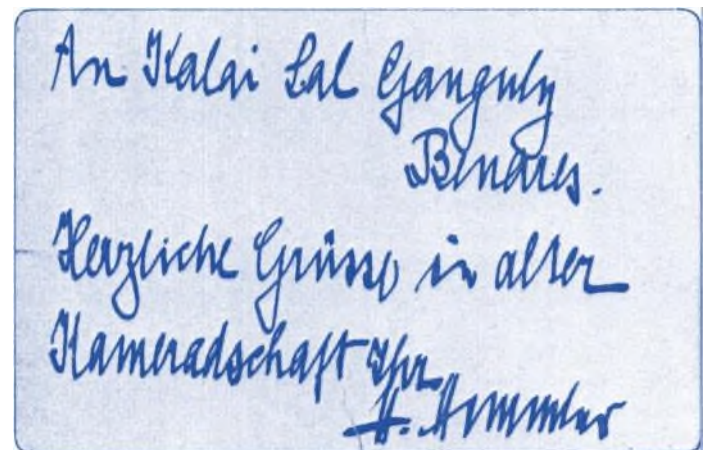 An Kalai Lal Ganguly
Benares.
Herzliche Grüsse in alter
Kameradschaft Ihr
H. Himmler